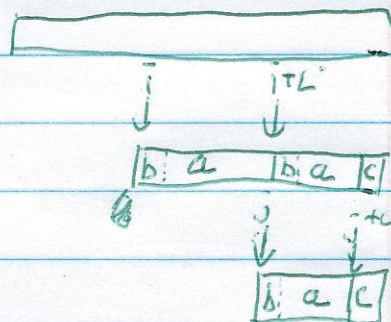 i i+L
b a b a c
j j+L
b a c